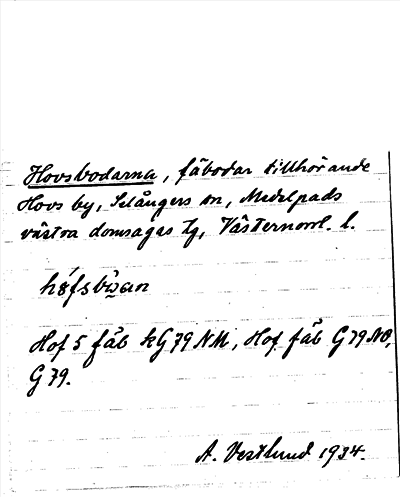 Hovsbodarna, fäbodar tillhörande
Hovs by, Selångers sn, Medelpads
västra domsagas tg, Västernorrl. l.
Hof 5 fäb kG79 NM, Hof fäb G79 NO,
G 79.
A. Vestlund 1934.